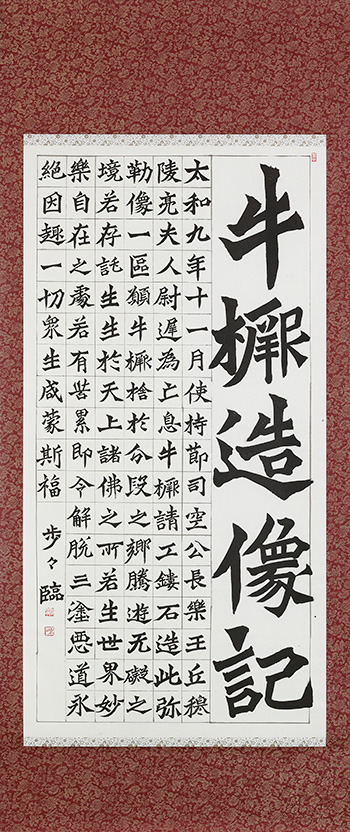 牛橛造像記
太和九年十一月使持節司空公長樂王丘穆
陵亮夫人尉遲為亡息牛橛請工鏤石造此弥
勒像一區願牛橛捨於分段之鄉騰遊无礙之
境若存託生生於天上諸佛之所若生世界妙
樂自在之處若有苦累即令解脫三塗惡道永
絕因趣一切衆生咸蒙斯福
步々臨